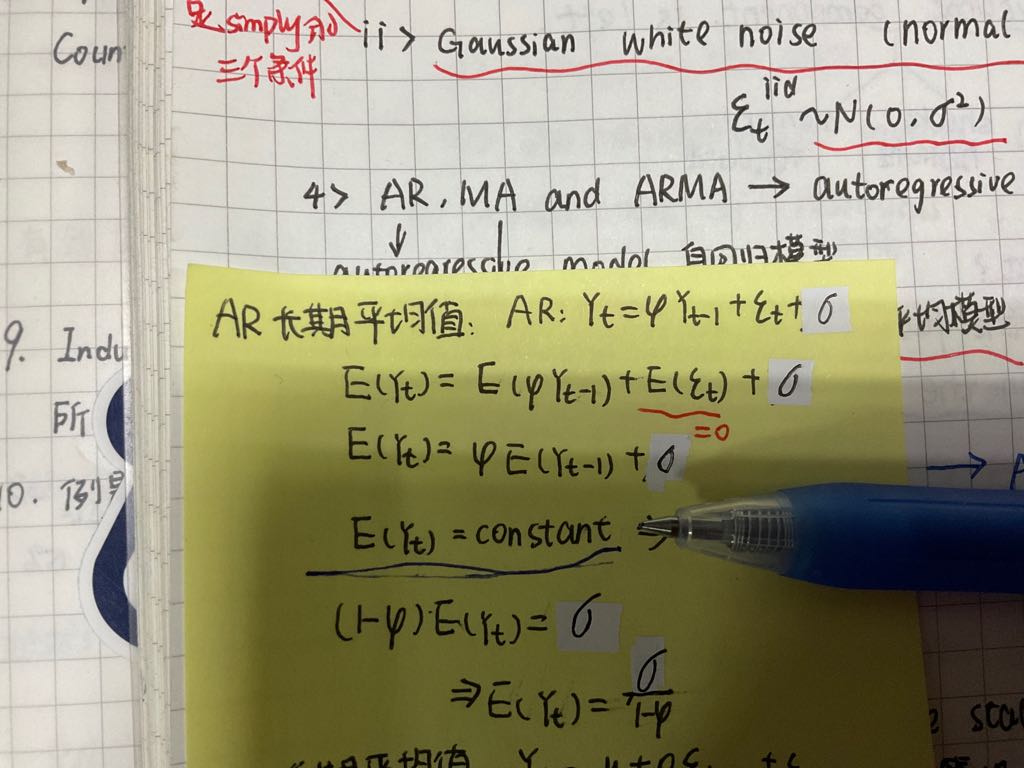 是simply加
三个条件
ii> Gaussian white noise (normal
εt iid ~N(0, σ²)
4> AR, MA and ARMA → autoregressive
autoregressive model 自回归模型
平均模型
Coun
9. Indu
所
10.
AR长期平均值: AR: Yt = φYt-1 + εt + σ
E(Yt) = E(φYt-1) + E(εt) + σ
=0
E(Yt) = φE(Yt-1) + σ
E(Yt) = constant ⇒
(1-φ)·E(Yt) = σ
⇒ E(Yt) = σ/1-φ
期平均值